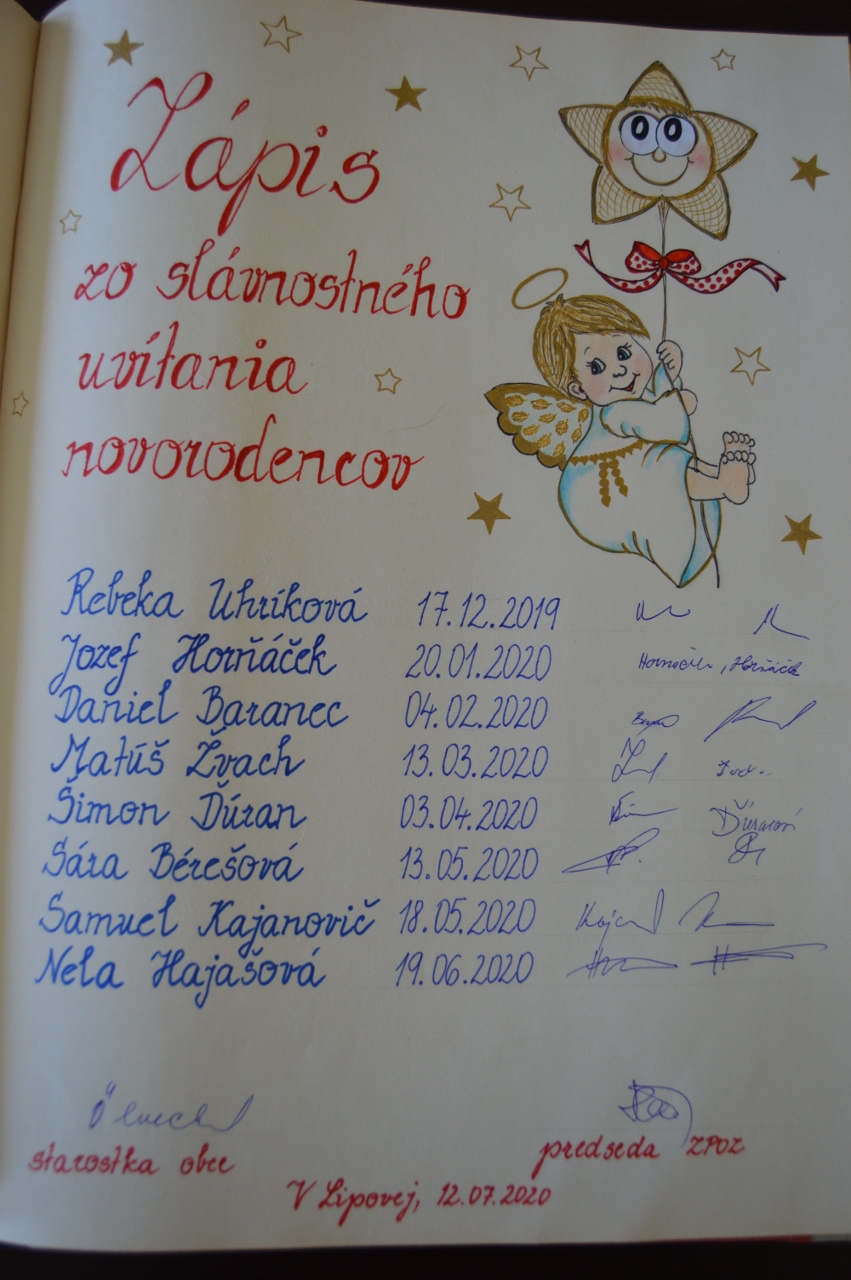 Zápis
zo slávnostného
uvítania
novorodencov
Rebeka Uhríková 17.12.2019
Jozef Horňáček 20.01.2020 Horňáček
Daniel Baranec 04.02.2020
Matúš Žvach 13.03.2020
Šimon Ďúran 03.04.2020 Ďúranová
Sára Bérešová 13.05.2020
Samuel Kajanovič 18.05.2020
Nela Hajašová 19.06.2020
starostka obce predseda ZPOZ
V Lipovej, 12.07.2020